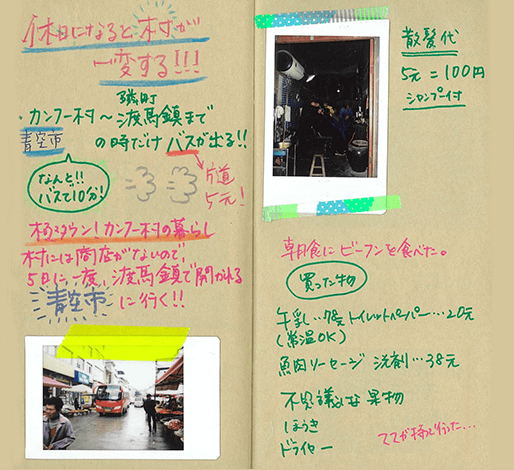 休日になると村が
一変する!!!
隣町
・カンフー村〜渡馬鎮まで
青空市 の時だけバスが出る!!
なんと!!
バスで10分!
片道
5元!
極タウン!カンフー村の暮らし
村には商店がないので、
5日に一度、渡馬鎮で開かれる
青空市 に行く!!
散髪代
5元=100円
シャンプー付
朝食にビーフンを食べた。
買った物
牛乳…78元 トイレットペーパー…20元
(常温OK)
魚肉ソーセージ 洗剤…38元
不思議な果物
ほうき
ドライヤー
ママが持って行った…